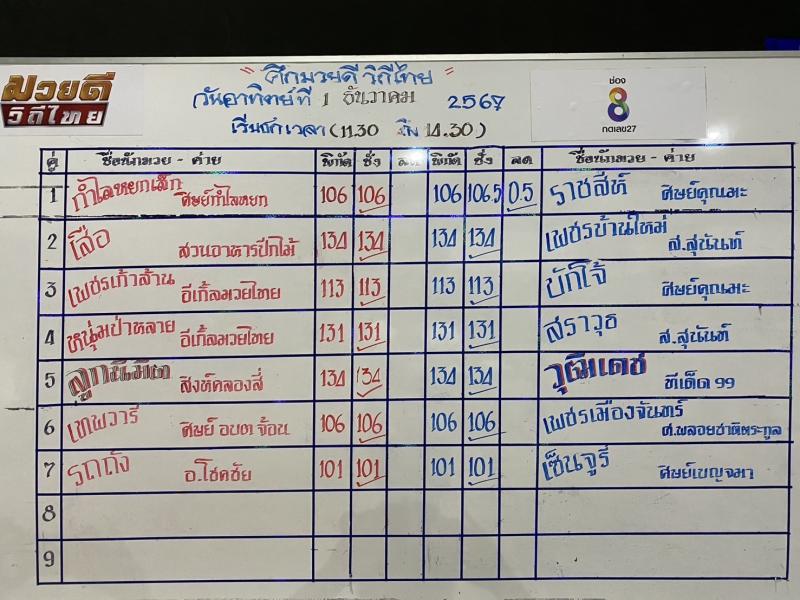 มวยดี
วิถีไทย
" ศึกมวยดี วิถีไทย "
วันอาทิตย์ที่ 1 ธันวาคม 2567
เริ่มชกเวลา (11.30 ถึง 14.30)
ช่อง
8
กดเลข27
คู่ ชื่อนักมวย - ค่าย พิกัด ชั่ง ลด พิกัด ชั่ง ลด ชื่อนักมวย - ค่าย
1 กำไลหยกเล็ก ศิษย์กำไลหยก 106 106 106 106.5 0.5 ราชสีห์ ศิษย์คุณมะ
2 เสือ สวนอาหารปีกไม้ 134 134 134 134 เพชรบ้านใหม่ ส.สุนันท์
3 เพชรเก้าล้าน อีเกิ้ลมวยไทย 113 113 113 113 บักโจ้ ศิษย์คุณมะ
4 หนุ่มป่าหลาย อีเกิ้ลมวยไทย 131 131 131 131 สราวุธ ส.สุนันท์
5 ลูกนิมิต สิงห์คลองสี่ 134 134 134 134 วุฒิเดช ทีเด็ด 99
6 เทพวารี ศิษย์ อบต จ้อน 106 106 106 106 เพชรเมืองจันทร์ ศ.พลอยชาติตระกูล
7 รถถัง อ.โชคชัย 101 101 101 101 เซ็นจูรี่ ศิษย์เบญจมา
8
9